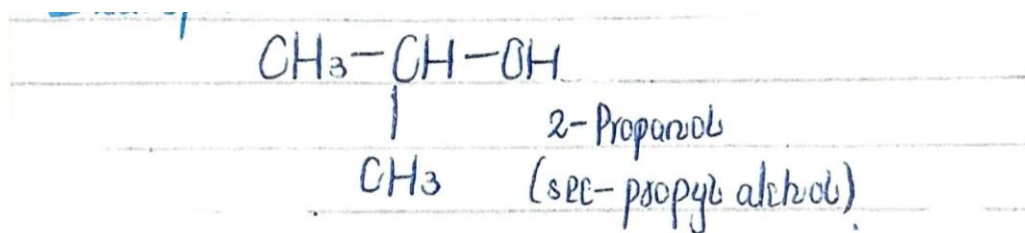 CH₃-CH-OH
|
CH₃
2-Propanol
(sec-propyl alchol)